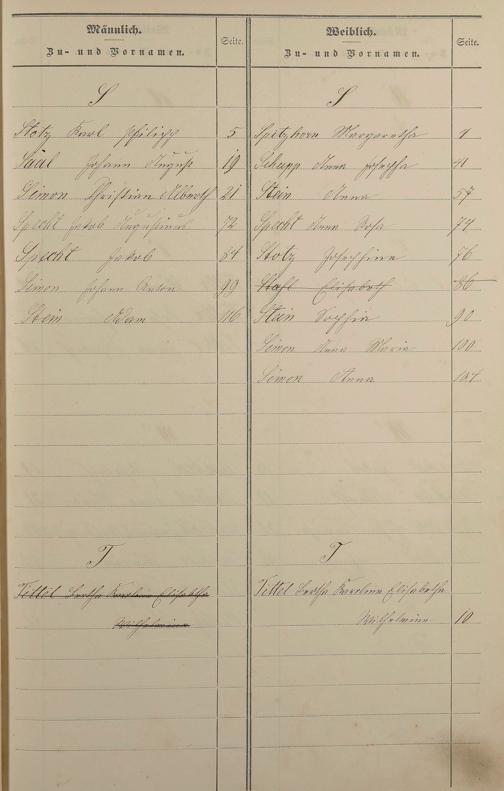 Männlich.
Zu- und Vornamen.
Seite.
S
Stotz Karl Philipp 5
Saal Johann August 19
Simon Christian Albert 21
Specht Jakob Augustinus 72
Specht Jakob 84
Simon Johann Anton 99
Stein Adam 116
T
Tittel Bertha Karoline Elisabetha
Wilhelmine
Weiblich.
Zu- und Vornamen.
Seite.
S
Spitzhorn Margaretha
Schupp Anna Josepha 41
Stein Anna 57
Specht Anna Rosa 74
Stotz Josephine 76
Elisabeth 86
Stein Sophia 90
Simon Anna Maria 100
Simon Anna 104
T
Tittel Bertha Karoline Elisabetha
Wilhelmine 10